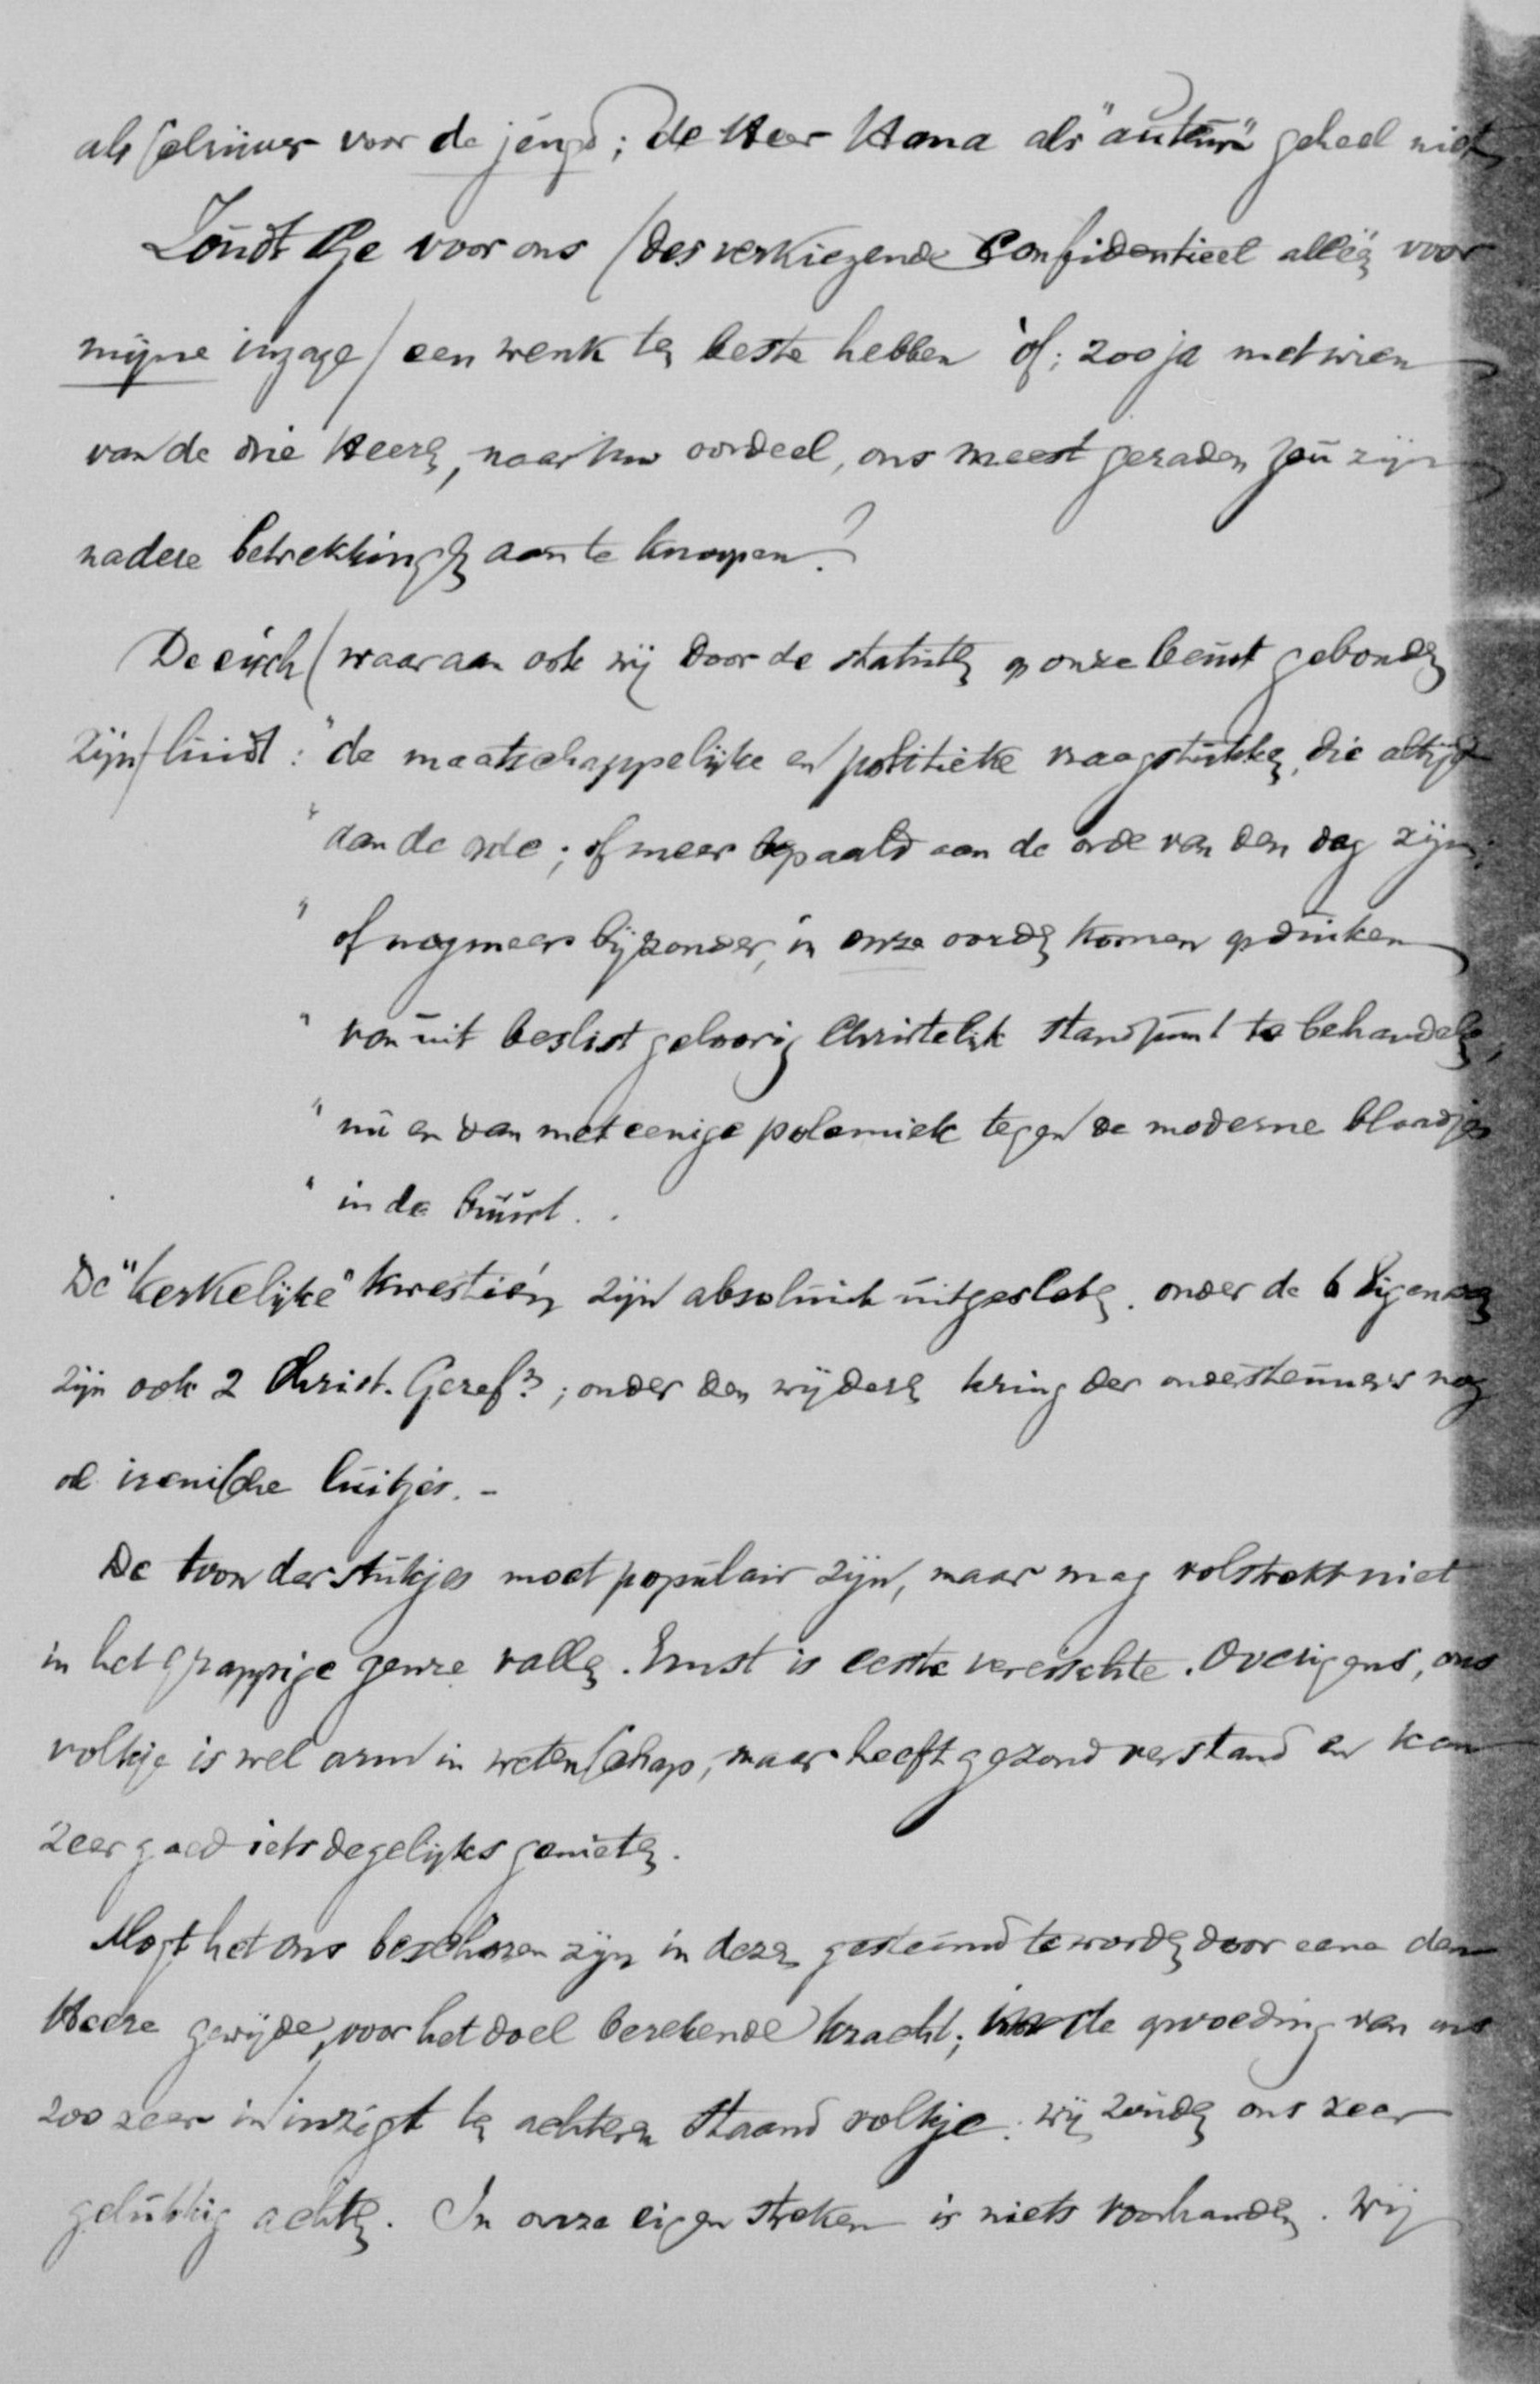 als schrijver voor de jeugd; de Heer Hana als "auteur" geheel niet
Zoudt Ge voor ons (des verkiezende Confidentieel alléén voor
mijne inzage) een wenk ten beste hebben òf; zoo ja met wien
van de drie Heeren, naar Uw oordeel, ons meest geraden zou zijn
nadere betrekkingen aan te knoopen?
De eisch (waaraan ook wij door de statuten op onze beurt gebonden
zijn) luidt: "de maatschappelijke en politieke vraagstukken, die altijd
" aan de orde; of meer bepaald aan de orde van den dag zijn;
" of nog meer bijzonder, in onze oorden komen opduiken
" van uit beslist geloovig Christelijk standpunt te behandelen,
" nu en dan met eenige polemiek tegen de moderne blaadjes
" in de buurt. .
De "kerkelijke" kwestiën zijn absoluut uitgesloten. onder de 6 Eigenaren
zijn ook 2 Christ. Geref.; onder den wijderen kring der ondersteuners nog
al irenische luitjes. -
De toon der stukjes moet populair zijn, maar mag volstrekt niet
in het grappige genre vallen. Ernst is eerste vereischte. Overigens, ons
volkje is wel arm in wetenschap, maar heeft gezond verstand en kan
zeer goed iets degelijks genieten.
Mogt het ons beschoren zijn in dezen gesteund te worden door eene den
Heere gewijde, voor het doel berekende kracht; de opvoeding van ons
zoo zeer in inzigt ten achteren staand volkje. wij zouden ons zeer
gelukkig achten. In onze eigen streken is niets voorhanden. Wij